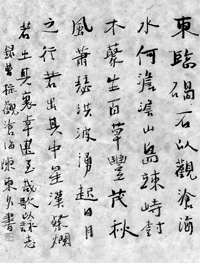 東臨碣石以觀滄海
水何澹澹山島竦峙樹
木叢生百草豐茂秋
風蕭瑟洪波湧起日月
之行若出其中星漢燦爛
若出其裏幸甚至哉歌以詠志
錄曹操觀滄海陳東書